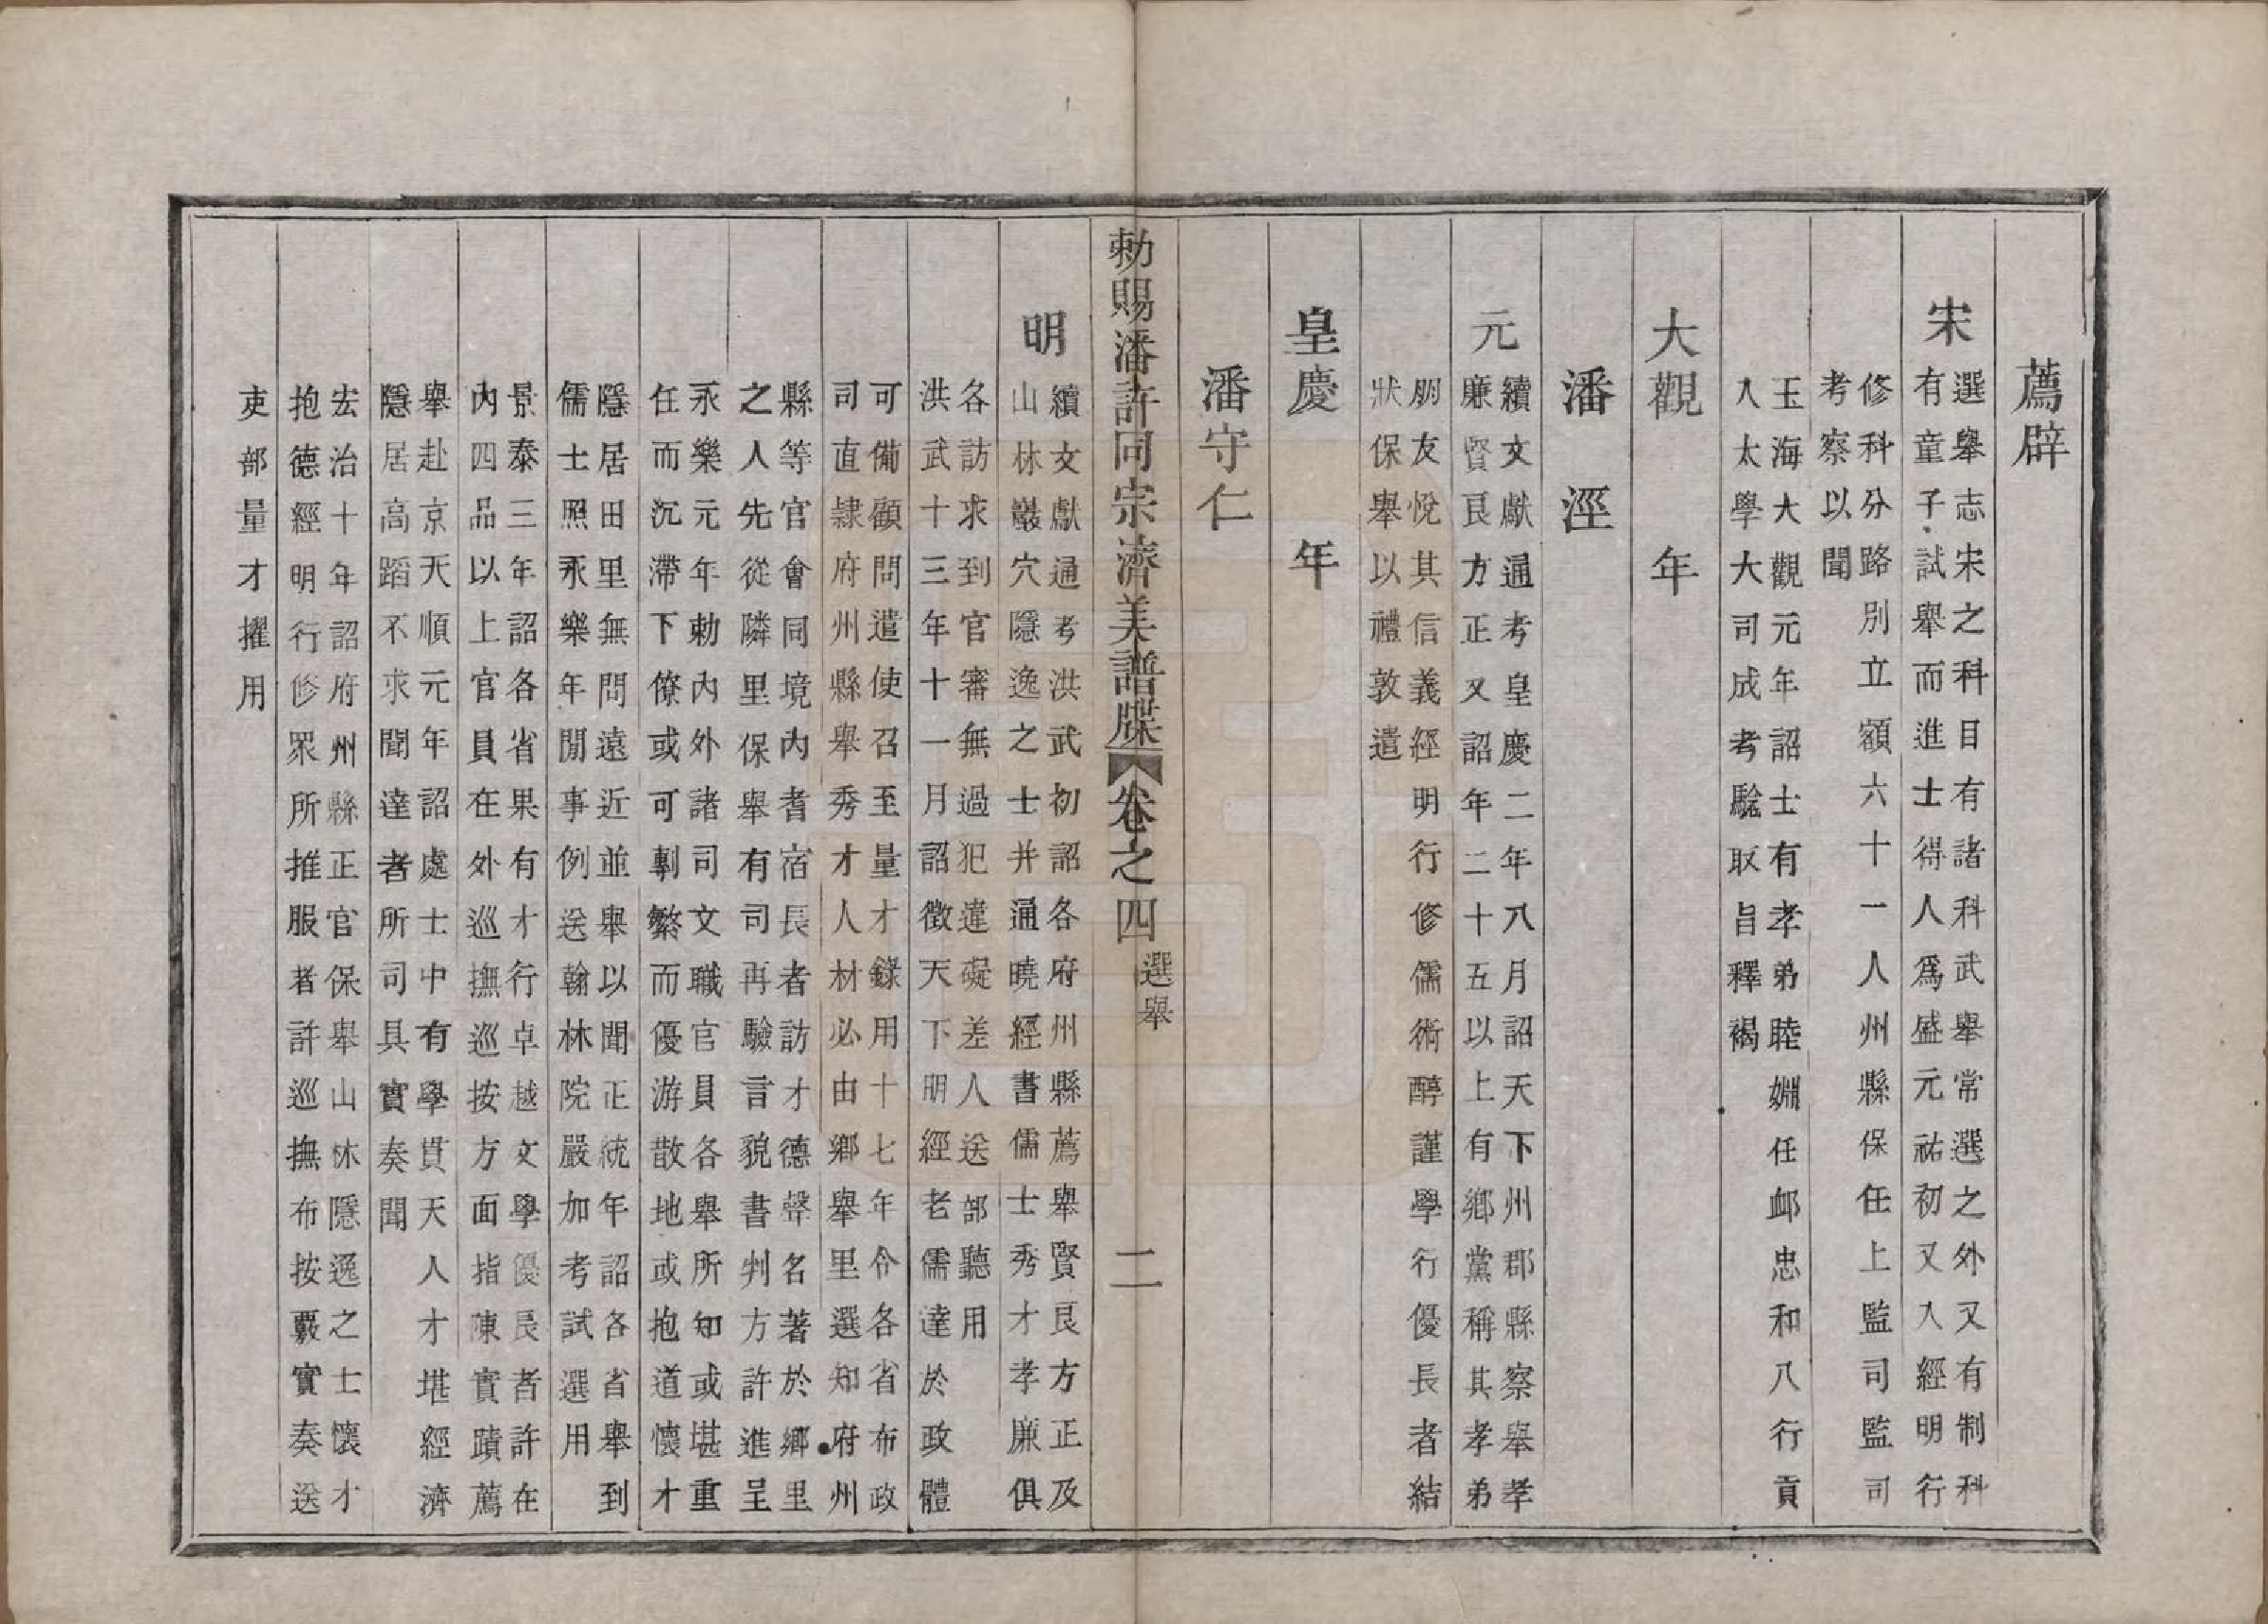 薦辟
宋
選舉志宋之科目有諸科武舉常選之外又有制科
有童子試舉而進士得人爲盛元祐初又入經明行
修科分路別立額六十一人州縣保任上監司監司
考察以聞
玉海大觀元年詔士有孝弟睦婣任卹忠和八行貢
入太學大司成考驗取旨釋褐
大觀　年
潘　涇
元
續文獻通考皇慶二年八月詔天下州郡縣察舉孝
廉賢良方正又詔年二十五以上有鄉黨稱其孝弟
朋友悅其信義經明行修儒術醇謹學行優長者結
狀保舉以禮敦遣
皇慶　年
潘守仁
勅賜潘許同宗濟美譜牒　卷之四　選舉　二
明
續文獻通考洪武初詔各府州縣薦舉賢良方正及
山林巖穴隱逸之士并通曉經書儒士秀才孝廉俱
各訪求到官審無過犯違礙差人送部聽用
洪武十三年十一月詔徵天下明經老儒達於政體
可備顧問遣使召至量才錄用十七年令各省布政
司直隸府州縣舉秀才人材必由鄉舉里選知府州
縣等官會同境内耆宿長者訪才德聲名著於鄉里
之人先從隣里保舉有司再驗言貌書判方許進呈
永樂元年勅內外諸司文職官員各舉所知或堪重
任而沉滯下僚或可剸繁而優游散地或抱道懷才
隱居田里無問遠近並舉以聞正統年詔各省舉到
儒士照永樂年閒事例送翰林院嚴加考試選用
景泰三年詔各省果有才行卓越文學優長者許在
內四品以上官員在外巡撫巡按方面指陳實蹟薦
舉赴京天順元年詔處士中有學貫天人才堪經濟
隱居高蹈不求聞達者所司具實奏聞
宏治十年詔府州縣正官保舉山林隱逸之士懷才
抱德經明行修眾所推服者許巡撫布按覈實奏送
吏部量才擢用